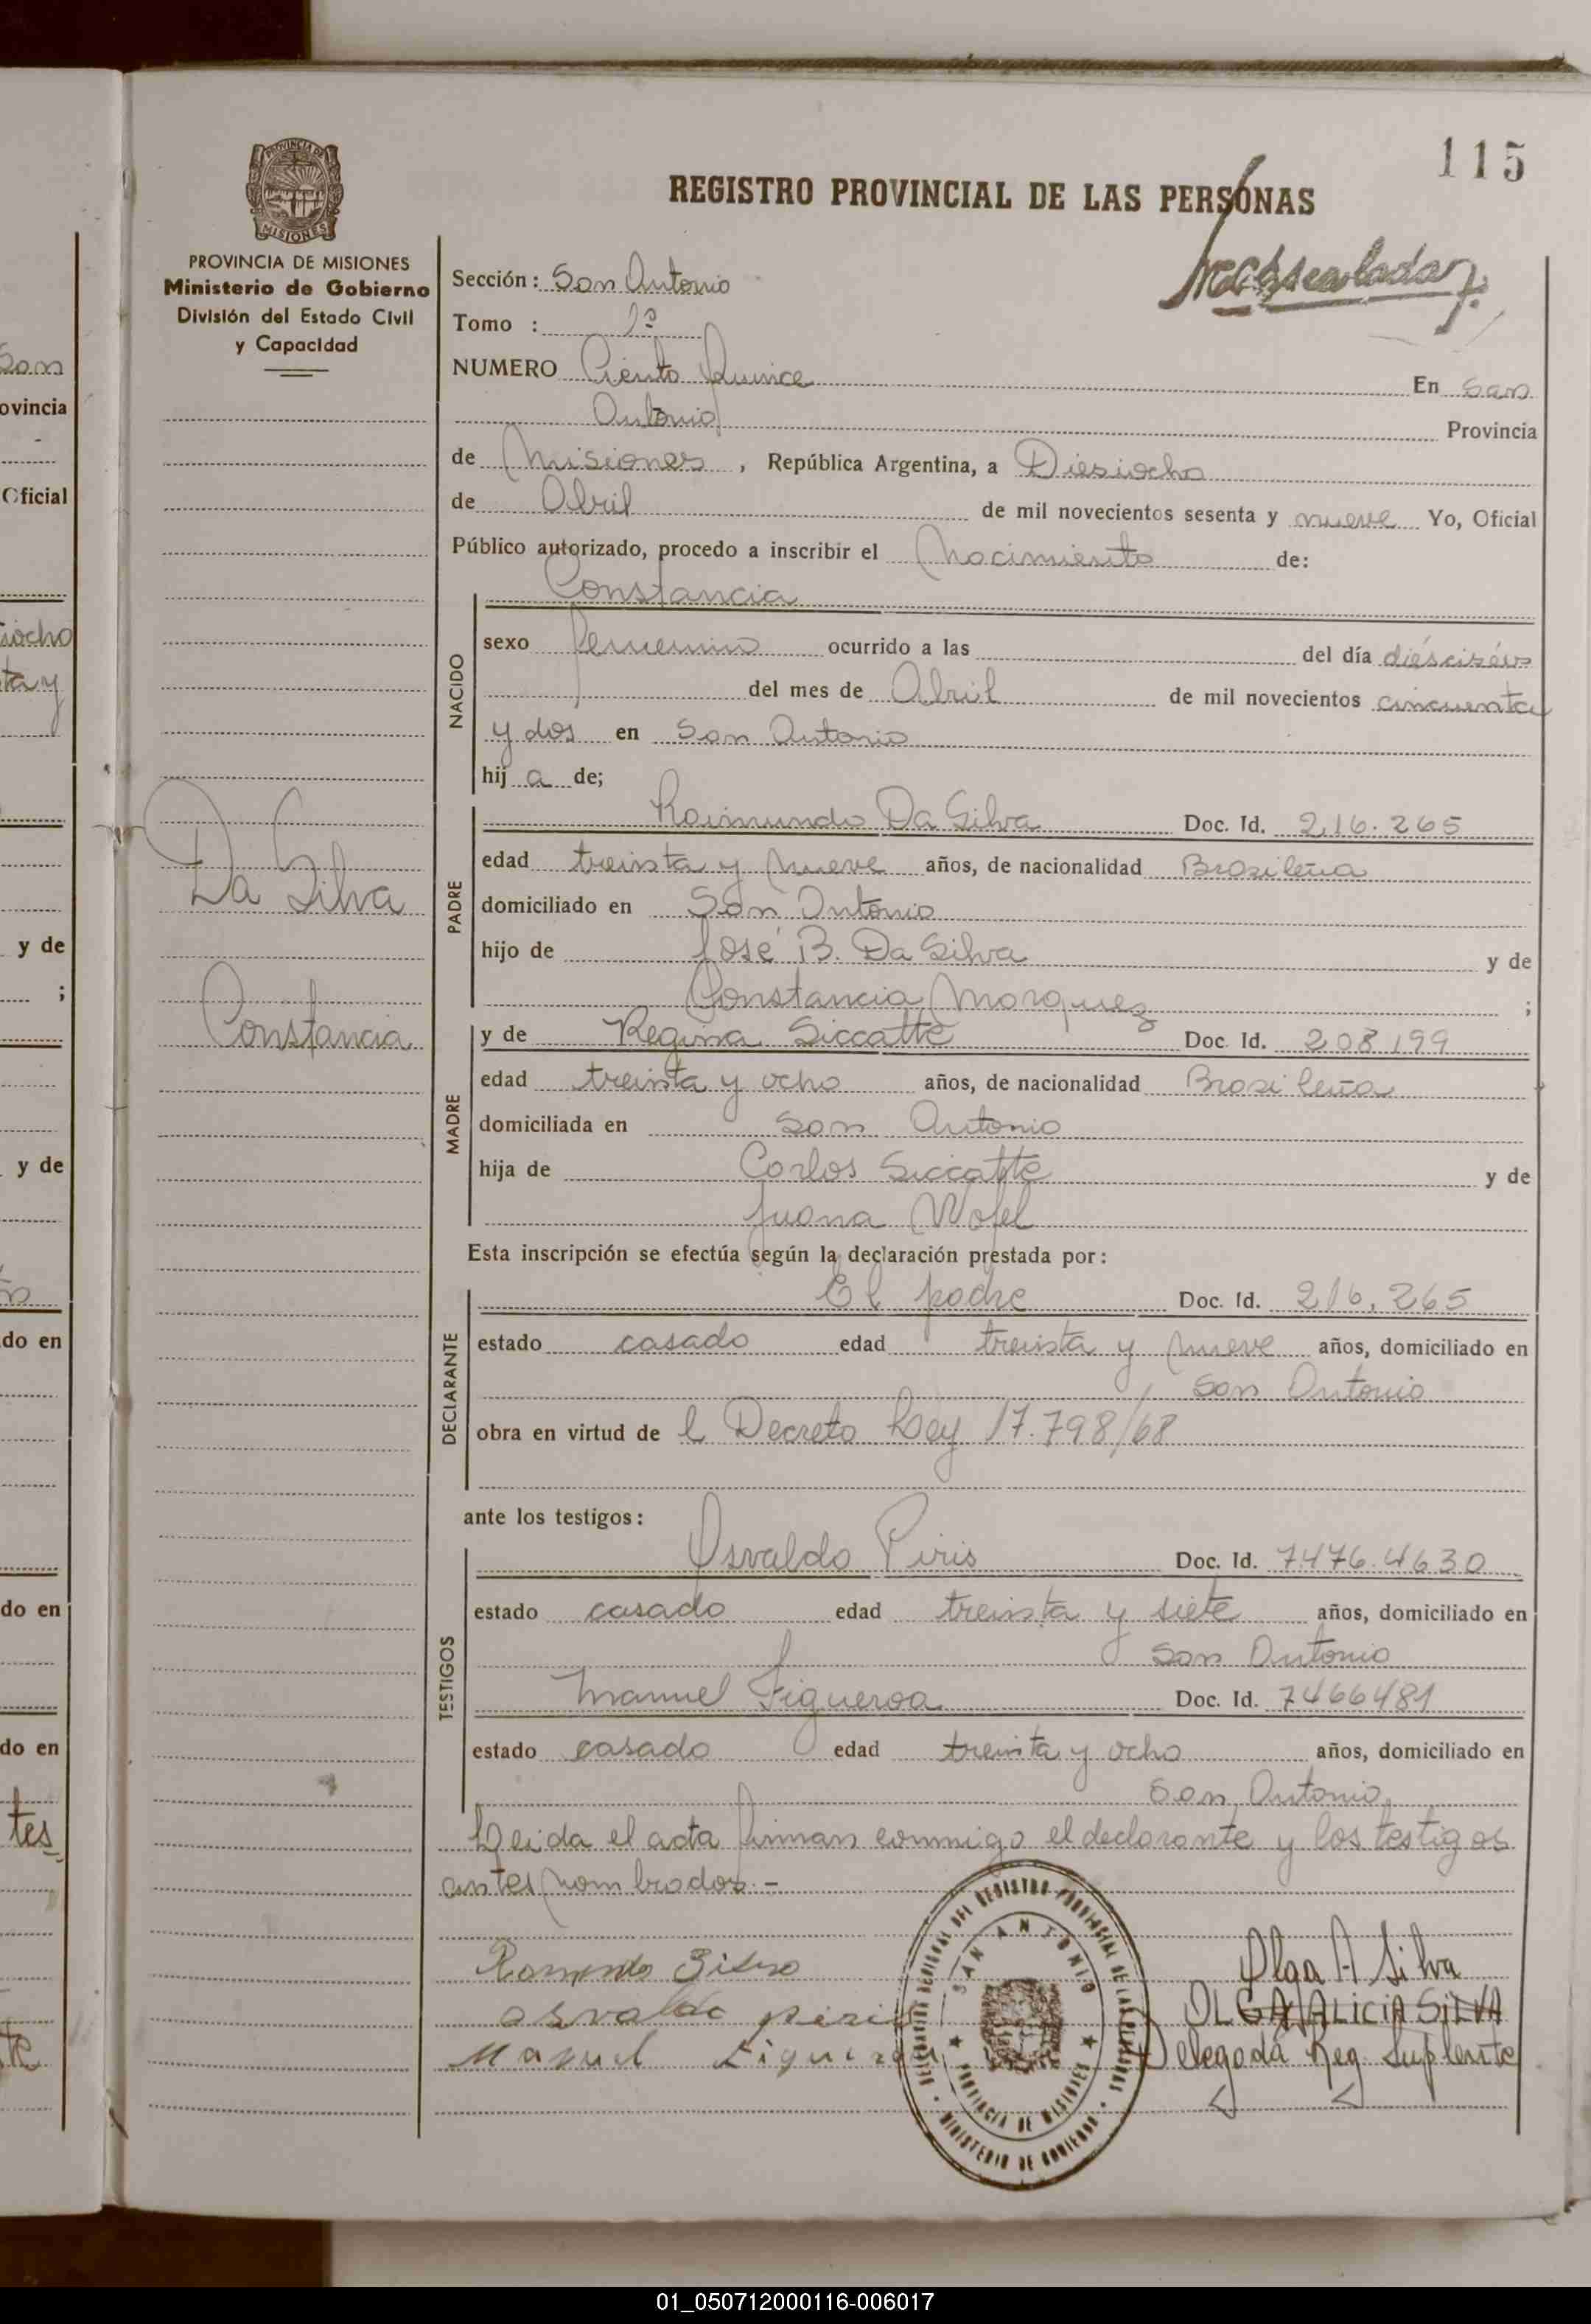 115
REGISTRO PROVINCIAL DE LAS PERSONAS
PROVINCIA DE MISIONES
Ministerio de Gobierno
División del Estado Civil
y Capacidad
Sección: San Antonio
Tomo : 1º
NUMERO Ciento Quince En San
Antonio Provincia
de Misiones, República Argentina, a Diesiocho
de Abril de mil novecientos sesenta y nueve Yo, Oficial
Público autorizado, procedo a inscribir el Nacimiento de:
Constancia
NACIDO
sexo femenino ocurrido a las del día diésciséis
del mes de Abril de mil novecientos cincuenta
y dos en San Antonio
hij a de;
Da Silva
Constancia
PADRE
Raimundo Da Silva Doc. Id. 2.16.265
edad treinta y nueve años, de nacionalidad Brasileña
domiciliado en San Antonio
hijo de José B. Da Silva y de
Constancia Marquez ;
MADRE
y de Regina Siccatte Doc. Id. 208.199
edad treinta y ocho años, de nacionalidad Brasileña
domiciliada en San Antonio
hija de Carlos Siccatte y de
Juana Wofel
Esta inscripción se efectúa según la declaración prestada por:
DECLARANTE
El padre Doc. Id. 216.265
estado casado edad treinta y nueve años, domiciliado en
San Antonio
obra en virtud de l Decreto Ley 17.798/68
ante los testigos:
TESTIGOS
Osvaldo Piris Doc. Id. 7.476.4630
estado casado edad treinta y siete años, domiciliado en
San Antonio
Manuel Figueroa Doc. Id. 7466481
estado casado edad treinta y ocho años, domiciliado en
San Antonio
Leida el acta firman conmigo el declarante y los testigos
antes nombrados.-
osvaldo piris
Manuel Figueroa
Olga A Silva
OLGA ALICIA SILVA
Delegada Reg. Suplente
SAN ANTONIO
PROVINCIA DE MISIONES
MINISTERIO DE GOBIERNO
01_050712000116-006017